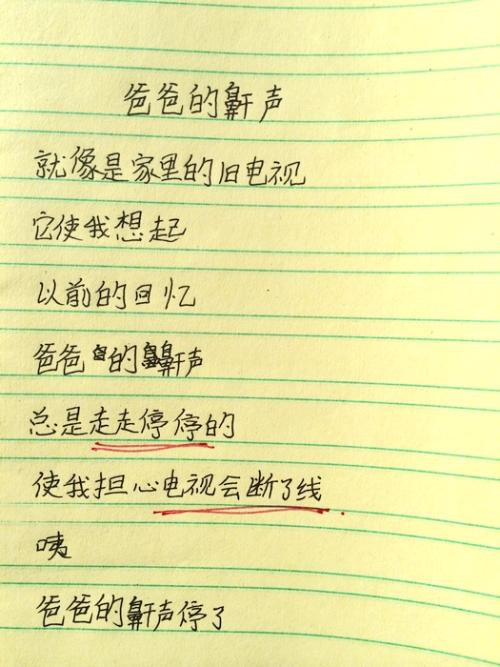 爸爸的鼾声
就像是家里的旧电视
它使我想起
以前的回忆
爸爸的鼾声
总是走走停停的
使我担心电视会断了线
咦
爸爸的鼾声停了